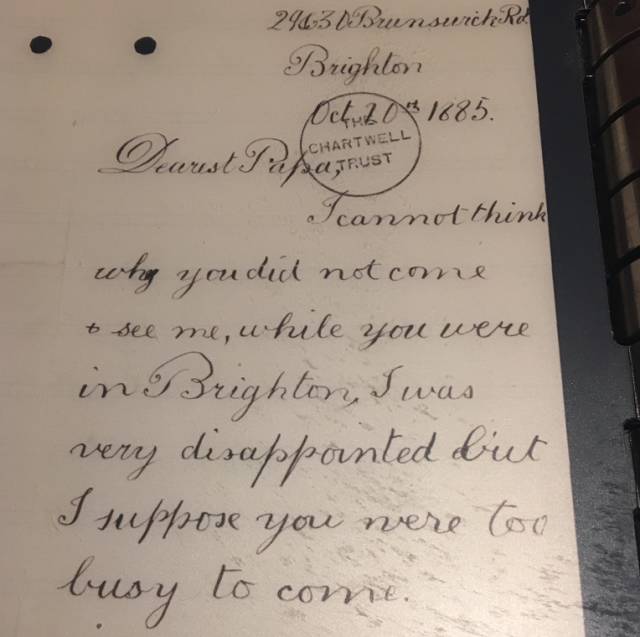 29 & 30 Brunswick Rd.
Brighton
Oct. 20th 1885.
THE
CHARTWELL
TRUST
Dearest Papa,
I cannot think
why you did not come
to see me, while you were
in Brighton, I was
very disappointed but
I suppose you were too
busy to come.